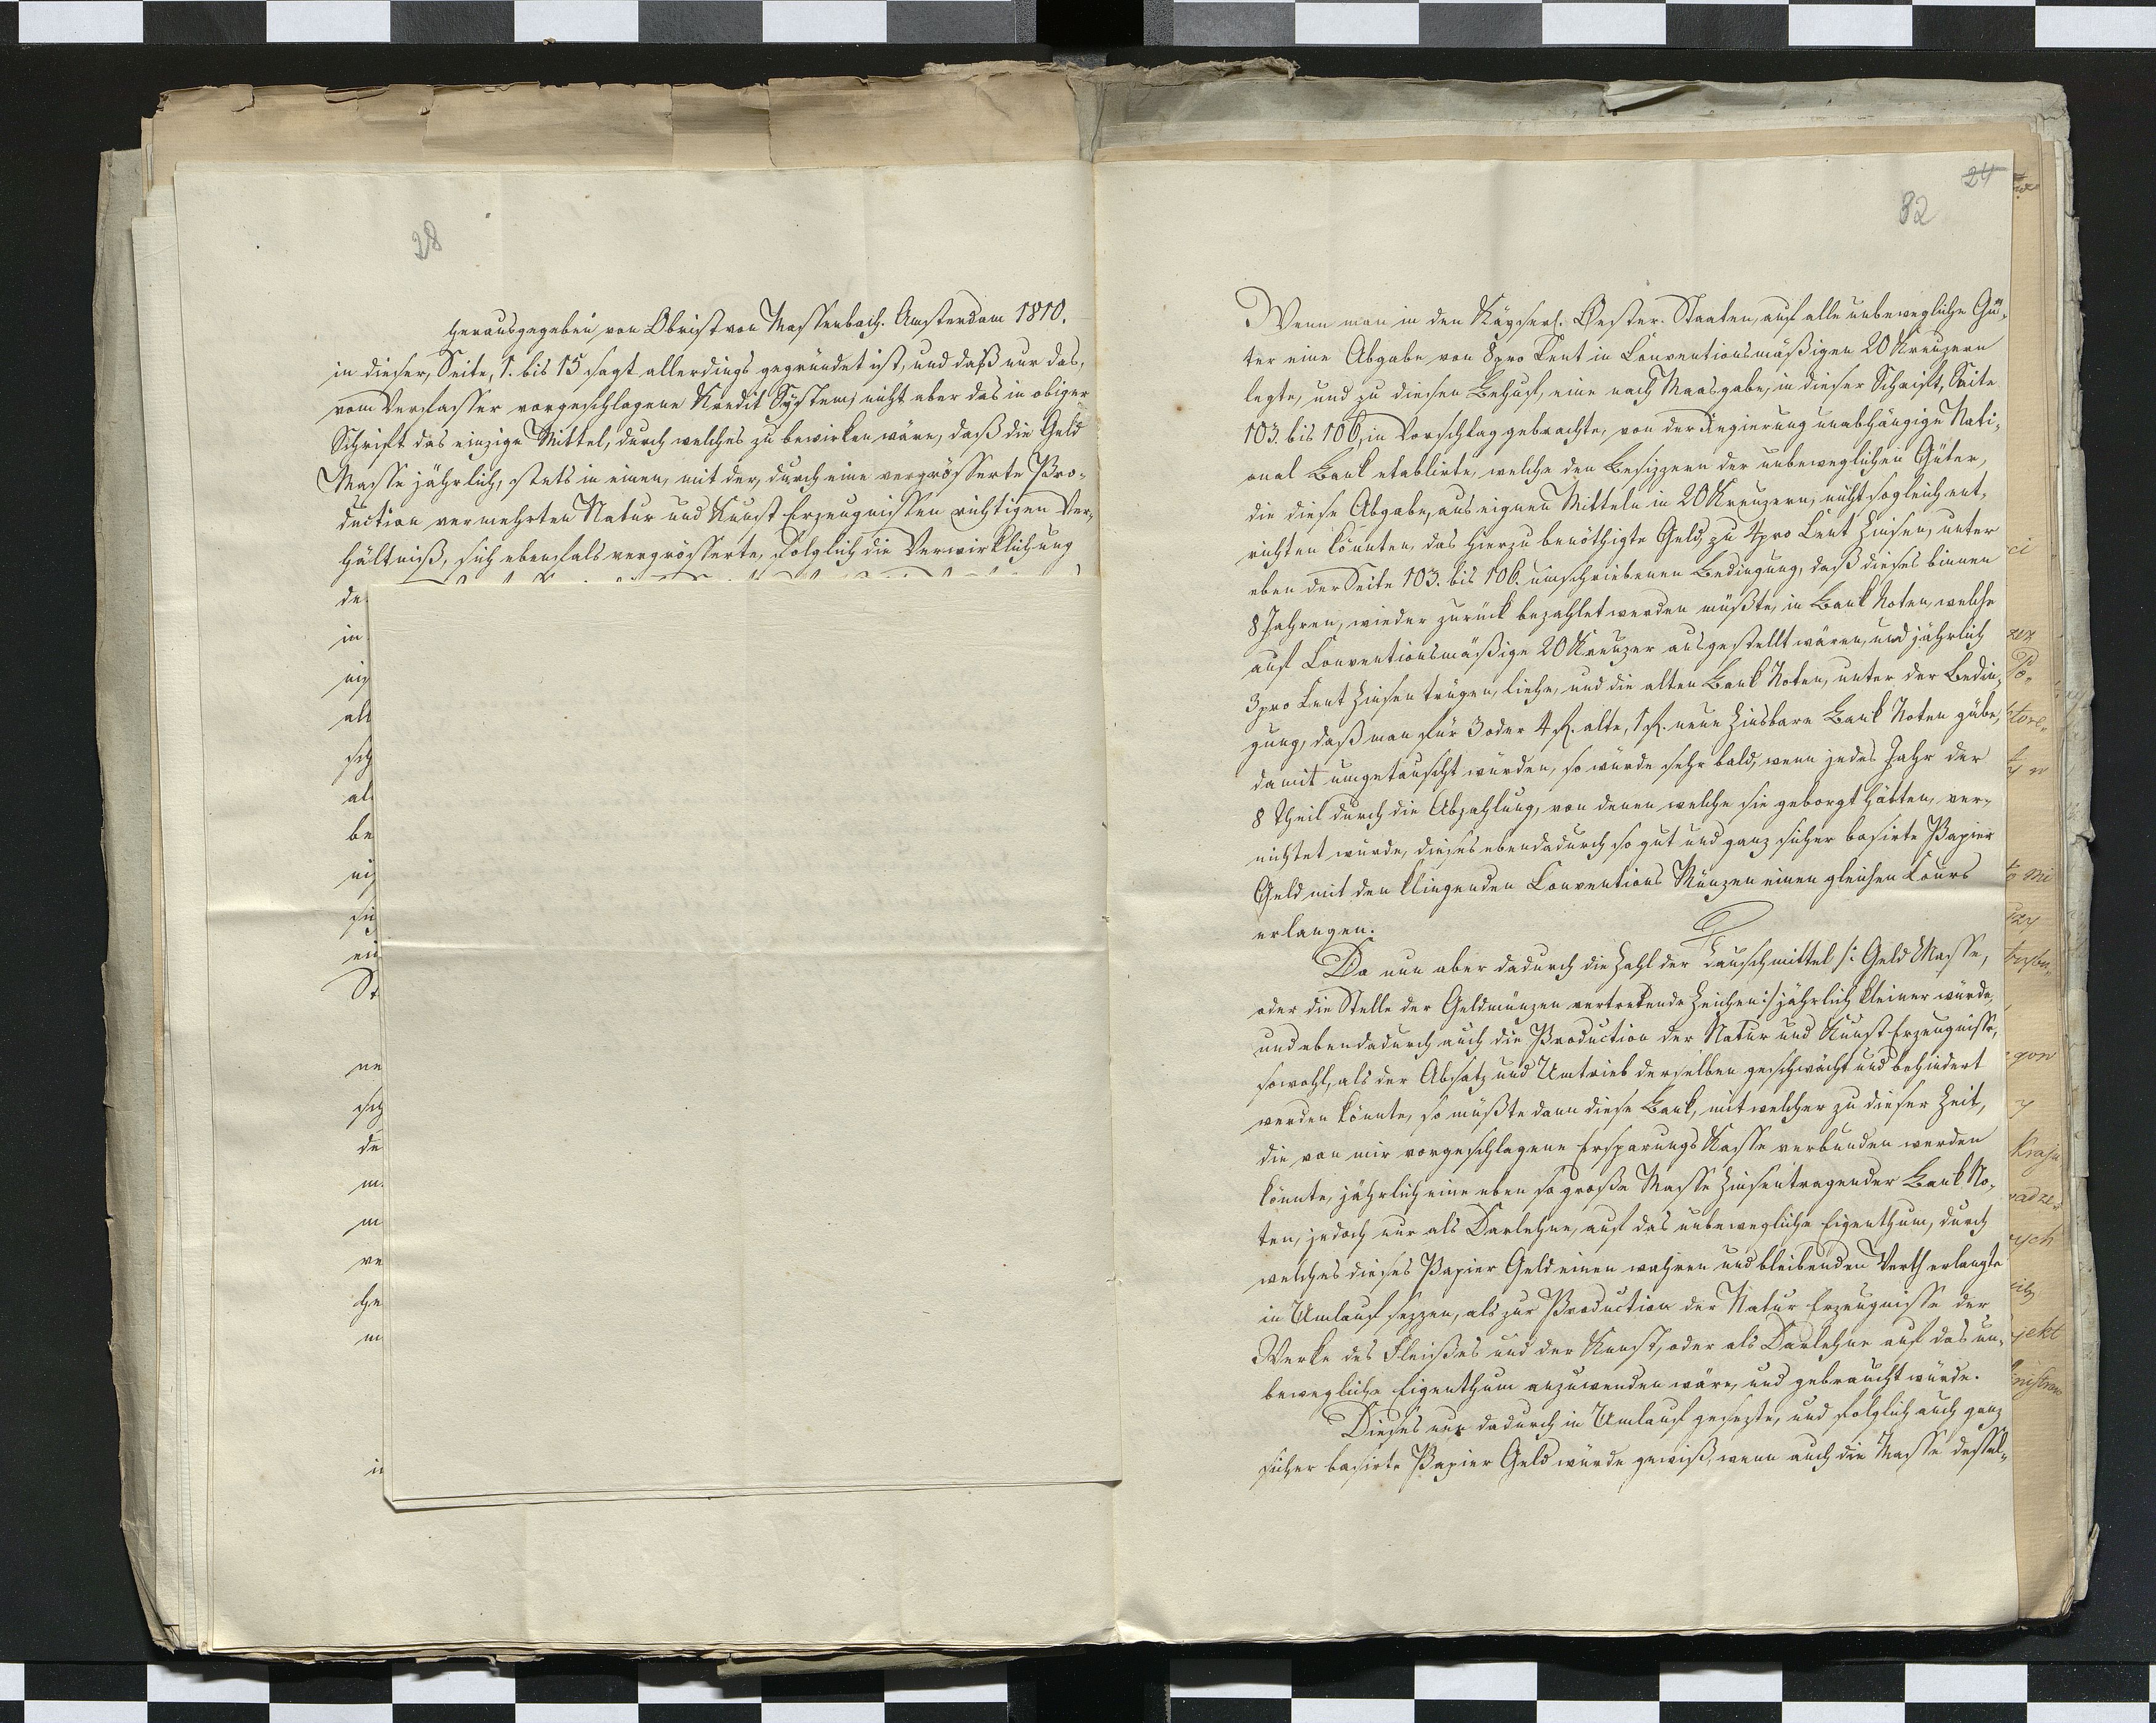 28
herausgegeben von Obrist von Massenbach. Amsterdam 1810.
in dieser, Seite, 1. bis 15 sagt allerdings gegründet ist, und daß nur das,
vom Verfasser vorgeschlagene Kredit System, nicht aber das in obiger
Schrift das einzige Mittel, durch welches zu bewirken wäre, daß die Geld
Masse jährlich, stets in einen, mit der, durch eine vergrösserte Pro-
duction vermehrten Natur und Kunst Erzeugnissen richtigen Ver-
hältniß, sich ebenfals vergrösserte, folglich die Verwirklichung
de
in
nig
all
sch
al
be
nich
sich
ein
St
ne
sch
de
m
m
ve
he
m
24
32
Wenn man in den Käyserl. Oester. Staaten, auf alle unbewegliche Gü-
ter eine Abgabe von 8 pro Cent in Conventionsmäßigen 20 Kreuzern
legte, und zu diesen Behuf, eine nach Maasgabe, in dieser Schrift, Seite
103. bis 106, in Vorschlag gebrachte, von der Regierung unabhängige Nati-
onal Bank etablirte, welche den Besizzern der unbeweglichen Güter,
die diese Abgabe, aus eignen Mitteln in 20 Kreuzern, nicht sogleich ent-
richten könnten, das hierzu benöthigte Geld, zu 4 pro Cent Zinsen, unter
eben der Seite 103. bis 106. umschriebenen Bedingung, daß dieses binnen
8 Jahren, wieder zurück bezahlet werden müßte, in Bank Noten, welche
auf Conventionsmäßige 20 Kreuzer ausgestellt wären, und jährlich
3 pro Cent Zinsen trügen, liehe, und die alten Bank Noten, unter der Bedin-
gung, daß man für 3 oder 4 f. alte, 1 f. neue Zinsbare Bank Noten gäbe,
damit umgetauscht würden, so würde sehr bald, wenn jedes Jahr der
8 Theil durch die Abzahlung, von denen welche sie geborgt hätten, ver-
nichtet würde, dieses ebendadurch so gut und ganz sicher basirte Papier
Geld mit den klingenden Conventions Münzen einen gleichen Cours
erlangen.
Da nun aber dadurch die Zahl der Tauschmittel /: Geld Masse,
oder die Stelle der Geldmünzen vertretende Zeichen :/ jährlich kleiner würde,
und ebendadurch auch die Production der Natur und Kunst Erzeugnisse,
sowohl, als der Absatz und Umtrieb derselben geschwächt und behindert
werden könnte, so müßte dann diese Bank, mit welcher zu dieser Zeit,
die von mir vorgeschlagene Ersparungs Kasse verbunden werden
könnte, jährlich eine eben so große Masse Zinsentragender Bank No-
ten, jedoch nur als Darlehne, auf das unbewegliche Eigenthum, durch
welches dieses Papier Geld einen wahren und bleibenden Werth erlangte
in Umlauf sezzen, als zur Production der Natur Erzeugnisse der
Werke des Fleißes und der Kunst, oder als Darlehne auf das un-
bewegliche Eigenthum anzuwenden wäre, und gebraucht würde.
Dieses nur dadurch in Umlauf gesezte, und folglich auch ganz
sicher basirte Papier Geld würde gewiß, wenn auch die Masse dessel-
ci
tore
gow
y
kraju
jekt